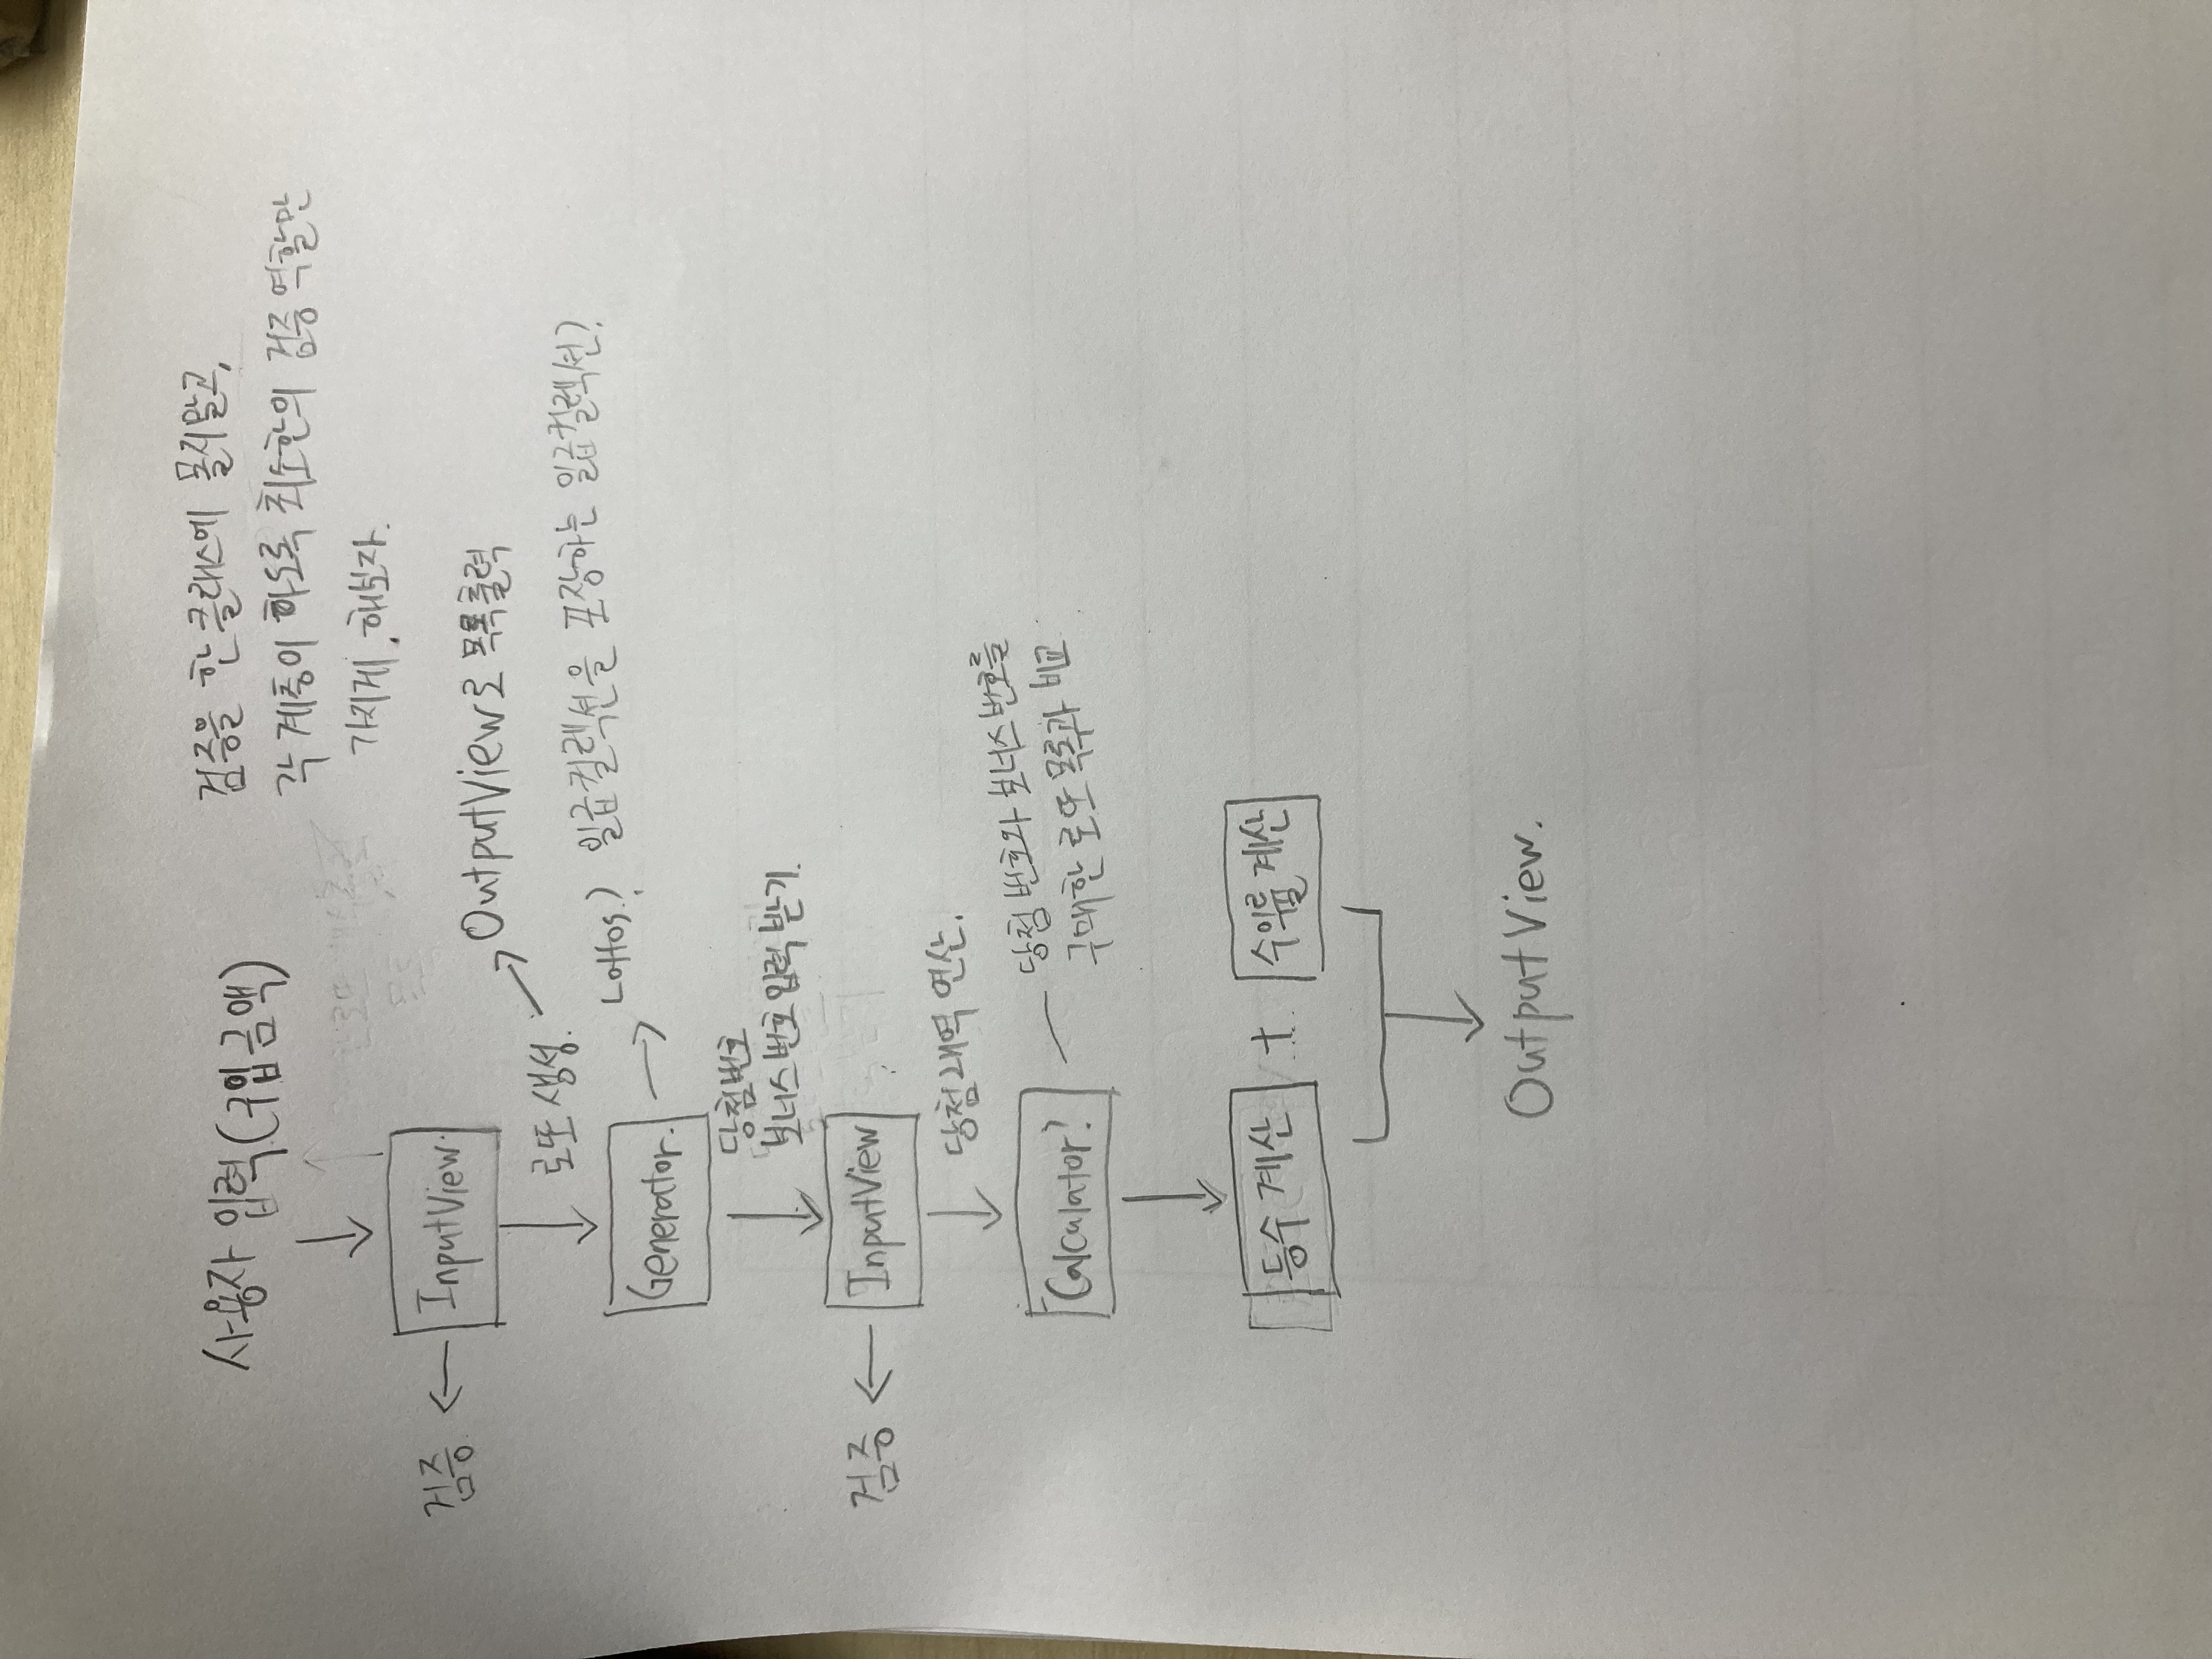 사용자 입력(구입금액)
검증을 한 클래스에 몰지말고,
각 계층이 하도록 최소한의 검증 역할만
가지게. 해보자.
검증 ← InputView.
로또 생성. → OutputView로 목록출력
Generator. →
일급컬렉션을 포장하는 일급컬렉션).
당첨번호
보너스 번호 입력 받기.
검증 ← InputView
당첨 내역 연산.
Calculator?
당첨 번호와 보너스 번호를
구매한 로또 목록과 비교
등수 계산 + 수익률 계산
OutputView.